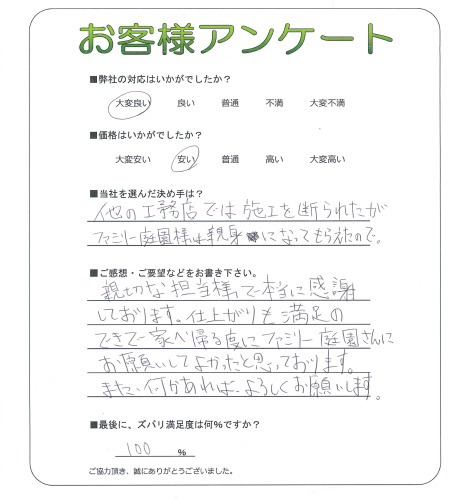 お客様アンケート
■弊社の対応はいかがでしたか？
大変良い 良い 普通 不満 大変不満
■価格はいかがでしたか？
大変安い 安い 普通 高い 大変高い
■当社を選んだ決め手は？
他の工務店では施工を断られたが
ファミリー庭園様は親身になってもらえたので。
■ご感想・ご要望などをお書き下さい。
親切な担当様で本当に感謝
しております。仕上がりも満足の
できで家へ帰る度にファミリー庭園さんに
お願いしてよかったと思っております。
また、何かあれば、よろしくお願いします。
■最後に、ズバリ満足度は何％ですか？
100 ％
ご協力頂き、誠にありがとうございました。